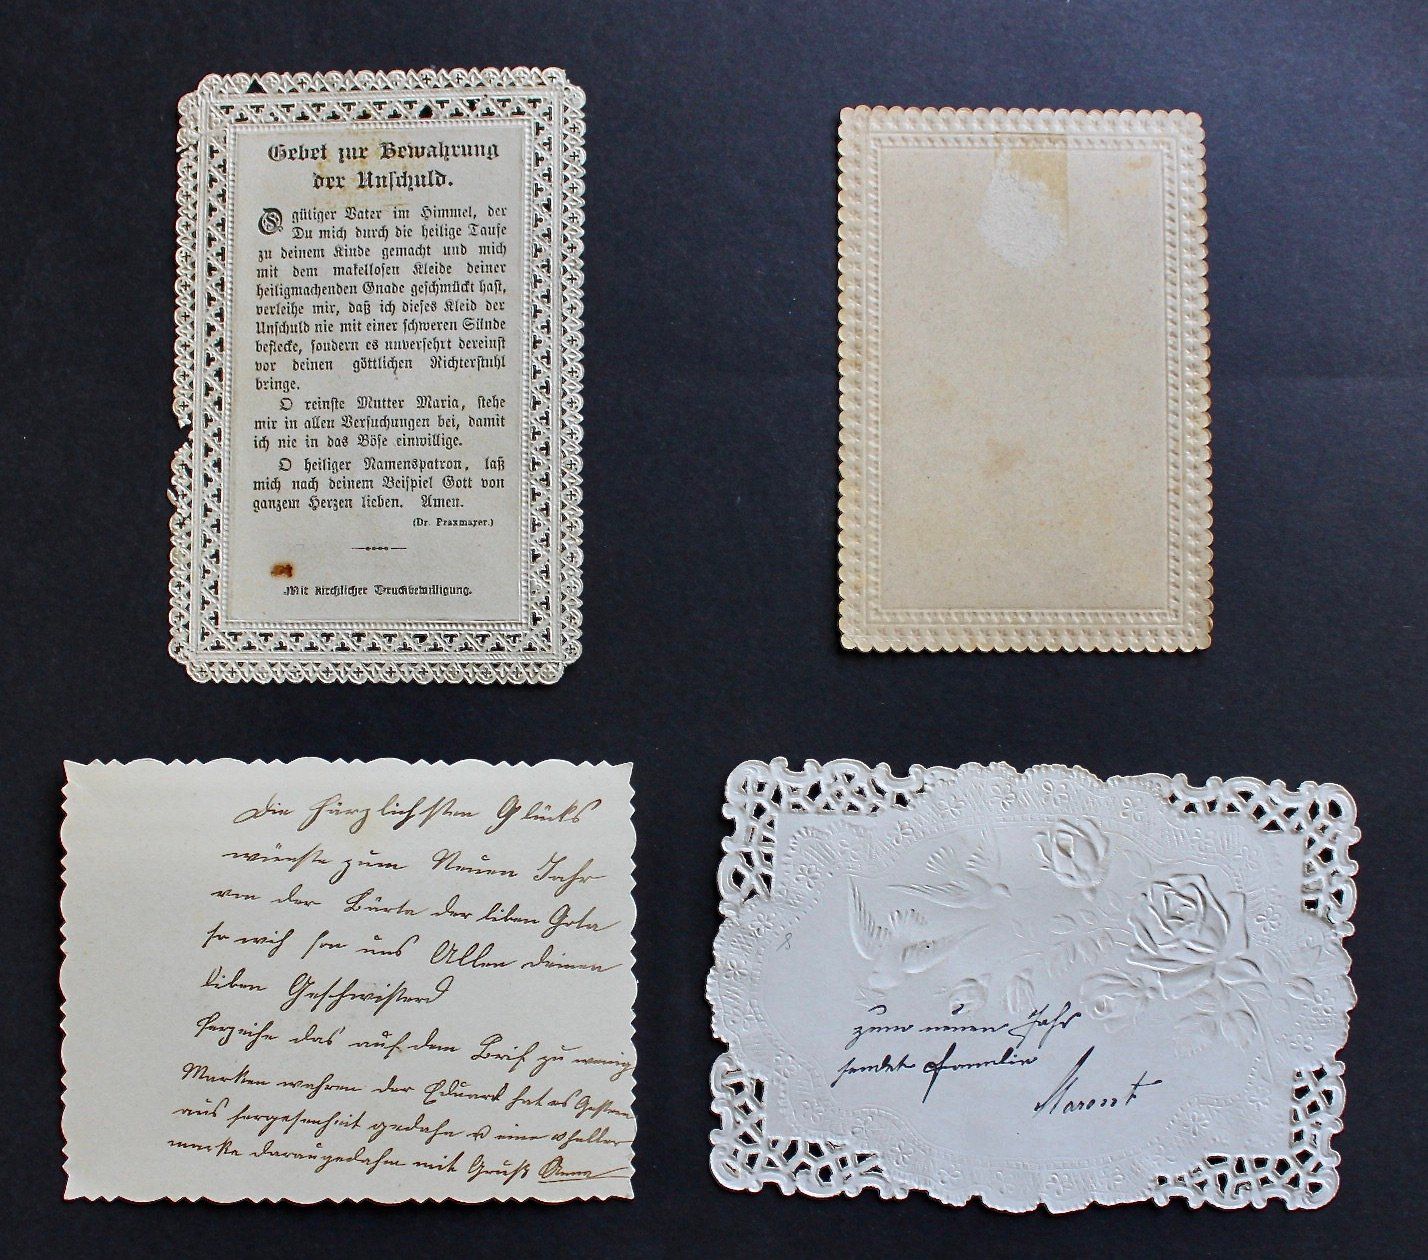 Gebet zur Bewahrung
der Unschuld.
O gütiger Vater im Himmel, der
Du mich durch die heilige Taufe
zu deinem Kinde gemacht und mich
mit dem makellosen Kleide deiner
heiligmachenden Gnade geschmückt hast,
verleihe mir, daß ich dieses Kleid der
Unschuld nie mit einer schweren Sünde
beflecke, sondern es unversehrt dereinst
vor deinen göttlichen Richterstuhl
bringe.
O reinste Mutter Maria, stehe
mir in allen Versuchungen bei, damit
ich nie in das Böse einwillige.
O heiliger Namenspatron, laß
mich nach deinem Beispiel Gott von
ganzem Herzen lieben. Amen.
(Dr. Praxmayer.)
Mit kirchlicher Druckbewilligung.
Die härzlichsten Glücks
wünste zum Neuen Jahr
von der Bärta der liben Gota
so wih fon uns Allen deinen
liben Geschwisterd
ferzeihe das auf dem Brif zu wenig
Marken wahren der Eduard hat es Gestern
aus fergesenheit gedahn u eine
marke daraugedahn mit Gruß Anna
8
zum neuen Jahr
sendet Familie